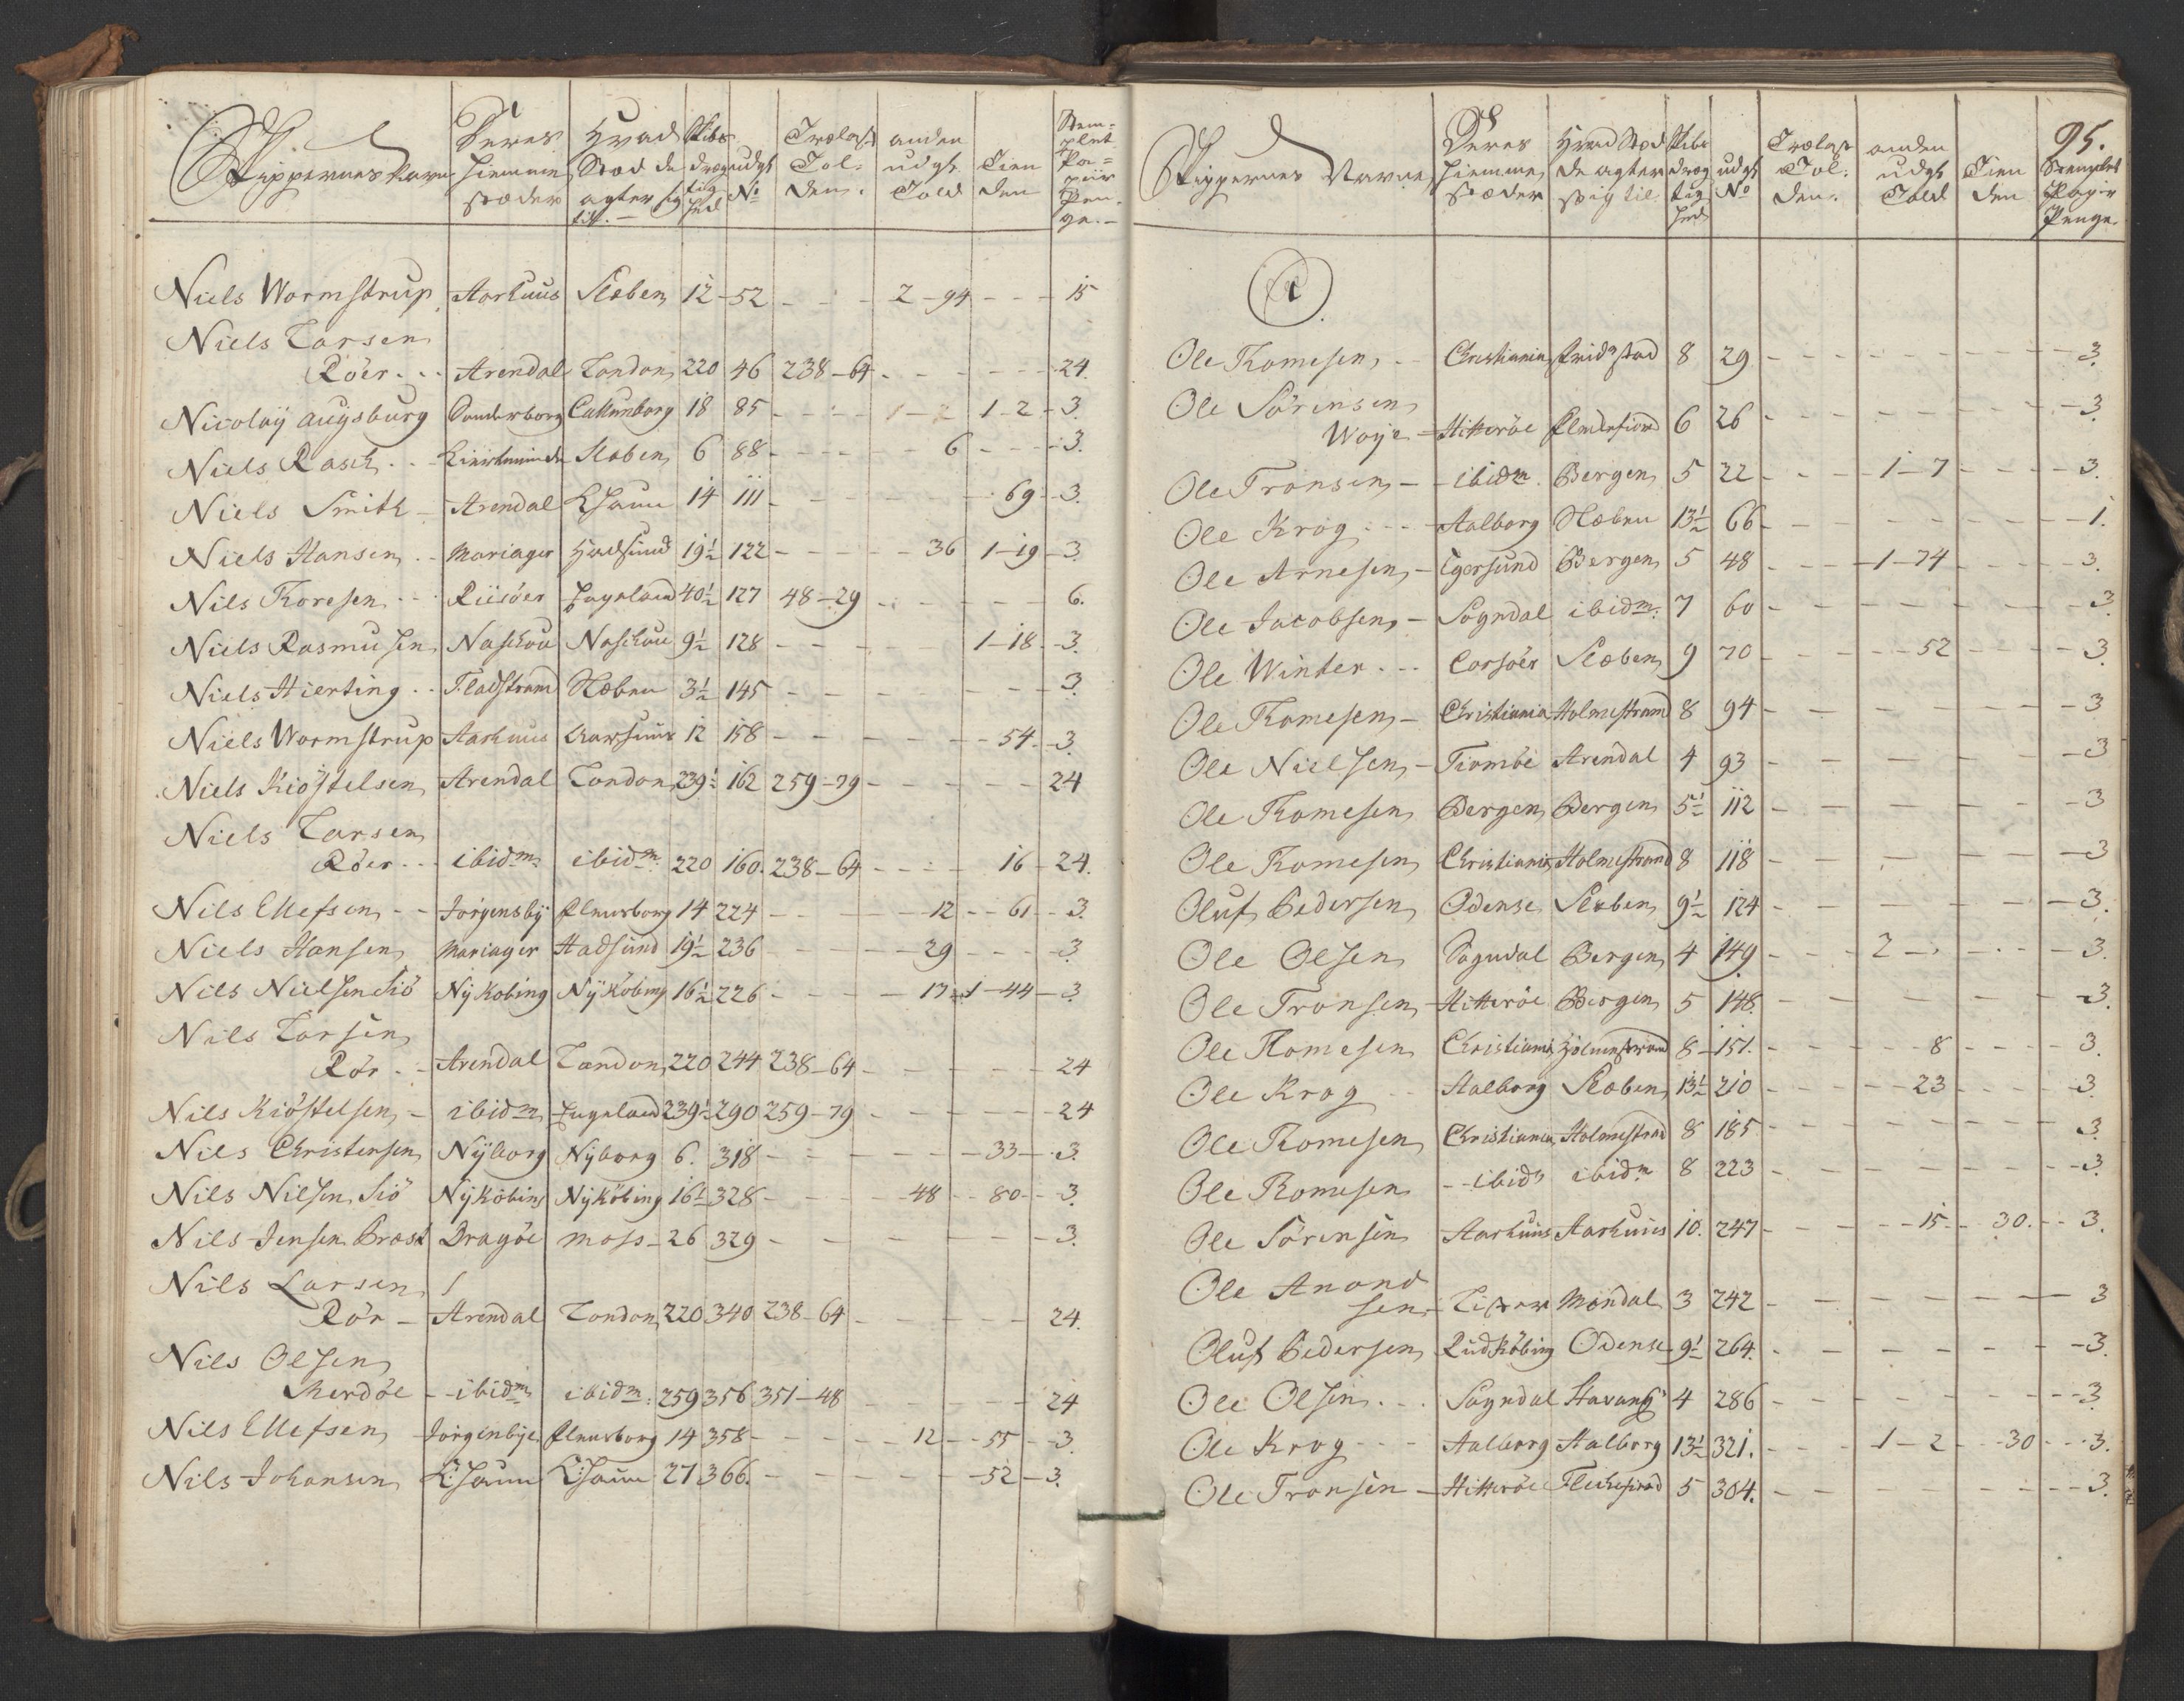 Skippernes Navne | Deres Hiemme stæder | Hvad Stæd de agter sig til. | Skibs drægtighed | udgl No | Trælast Tolden. | anden udgl Told | Tienden | Stemplet Papiir Penge.
Niels Wormstrup | Aarhuus | Sleben | 12 | 52 | - | 2-94 | - | 15
Niels Larsen
Röer | Arendal | London | 220 | 46 | 238-64 | - | - | 24.
Nicolaÿ augsburg | Sonderborg | Callunborg | 18 | 85 | - | | 1-2 | 3.
Niels Rasch | | Sleben | 6 | 88 | - | 6 | - | 3.
Niels Smith | Arendal | Khavn | 14 | 111 | - | - | 69 | 3.
Niels Hansen | Mariager | Hadsund | 19½ | 122 | - | 36 | 1-19 | 3
Nils Toresen | Riisöer | Engeland | 40½ | 127 | 48-29 | - | - | 6.
Niels Rasmusen | Naschou | Naschou | 9½ | 128 | - | - | 1-18 | 3.
Niels Hierting | Fladstrand | Sleben | 3½ | 145 | - | - | - | 3.
Niels Wormstrup | Aarhuus | | 12 | 158 | - | - | 54 | 3.
Niels Kiöstelsen | Arendal | London | 239½ | 162 | 259-79 | - | - | 24
Niels Larsen
Röer | ibidm | ibidm | 220 | 160. | 238-64 | - | 16 | 24.
Nils Ellefsen | Jörgensbÿ | Flensborg | 14 | 224 | - | 12 | 61 | 3.
Niels Hansen | Mariager | Hadsund | 19½ | 236 | - | 29 | - | 3
Nils Nielsen Siö | Nÿkobing | Nÿköbing | 16½ | 226 | - | 17 | 1-44 | 3
Nils Larsen
Rör | Arendal | London | 220 | 244 | 238-64 | - | - | 24
Nils Kiöstelsen | ibidm | Engeland | 239½ | 290 | 259-79 | - | - | 24
Nils Christensen | Nÿborg | Nÿborg | 6. | 318 | - | - | 33 | 3.
Nils Nilsen Siö | Nÿköbing | Nÿköbing | 16½ | 328 | - | 48 | 80 | 3.
Nils Jensen Brast | Dragöe | Moss | 26 | 329 | - | - | - | 3.
Nils Larsen
Rör | Arendal | London | 220 | 340 | 238-64 | - | - | 24.
Nils Olsen
Merdöe | ibidm | ibidm | 259 | 356 | 351-48 | - | - | 24
Nils Ellefsen | Jörgenbÿe | Flensborg | 14 | 358 | - | 12 | 55 | 3.
Nils Johansen | Khavn | Khavn | 27 | 366. | - | - | 52 | 3.
95.
Skippernes Navne | Deres Hiemme stæder | Hvad Stæd de agter sig til | Skibs drægtighed | udgl No | Trælast Tolden. | anden udgl Told | Tienden | Stemplet Papir Penge.
O
Ole Tomesen | Christiania | Fridrstad | 8 | 29 | - | - | - | 3.
Ole Sörensen
Woye | Hitteröe | | 6 | 26 | - | - | - | 3
Ole Tronsen | ibidm | Bergen | 5 | 22 | - | 1-7 | - | 3.
Ole Krog | Aalborg | Sleben | 13½ | 66 | - | - | - | 1.
Ole Arnesen | Egersund | Bergen | 5 | 48 | - | 1-74 | - | 3.
Ole Jacobsen | Sogndal | ibidm | 7 | 60 | - | - | - | 3
Ole Winter | Corsöer | Sleben | 9 | 70 | - | 52 | - | 3.
Ole Tomesen | Christiania | Holmestrand | 8 | 94 | - | - | - | 3
Ole Nielsen | Tromöe | Arendal | 4 | 93 | - | - | - | 3
Ole Tomesen | Bergen | Bergen | 5½ | 112 | - | - | - | 3
Ole Tomesen | Christiania | Holmestrand | 8 | 118 | - | - | - | 3
Oluf Pedersen | Odense | Sleben | 9½ | 124 | - | - | - | 3.
Ole Olsen | Sogndal | Bergen | 4 | 149 | - | 2 - | - | 3.
Ole Tronsen | Hitteröe | Bergen | 5 | 148. | - | - | - | 3.
Ole Tomesen | Christiania | Holmestrand | 8 | 151. | - | 8 | - | 3.
Ole Krog | Aalborg | Sleben | 13½ | 210 | - | 23 | - | 3
Ole Tomesen | Christiania | Holmestrad | 8 | 185 | - | - | - | 3.
Ole Tomesen | ibidm | ibidm | 8 | 223 | - | - | - | 3.
Ole Sörensen | Aarhuus | Aarhuus | 10. | 247 | - | 15 | 30. | 3.
Ole Anond
sen | Lister | Mandal | 3 | 242 | - | - | - | 3
Oluf Pedersen | Rudköbing | Odense | 9½ | 264. | - | - | - | 3.
Ole Olsen | Sogndal | Stavang | 4 | 286 | - | - | - | 3
Ole Krog | Aalborg | Aalborg | 13½ | 321. | - | 1-2 | 30 | 3.
Ole Tronsen | Hitteröe | Flechefiord | 5 | 304. | - | - | - | 3.